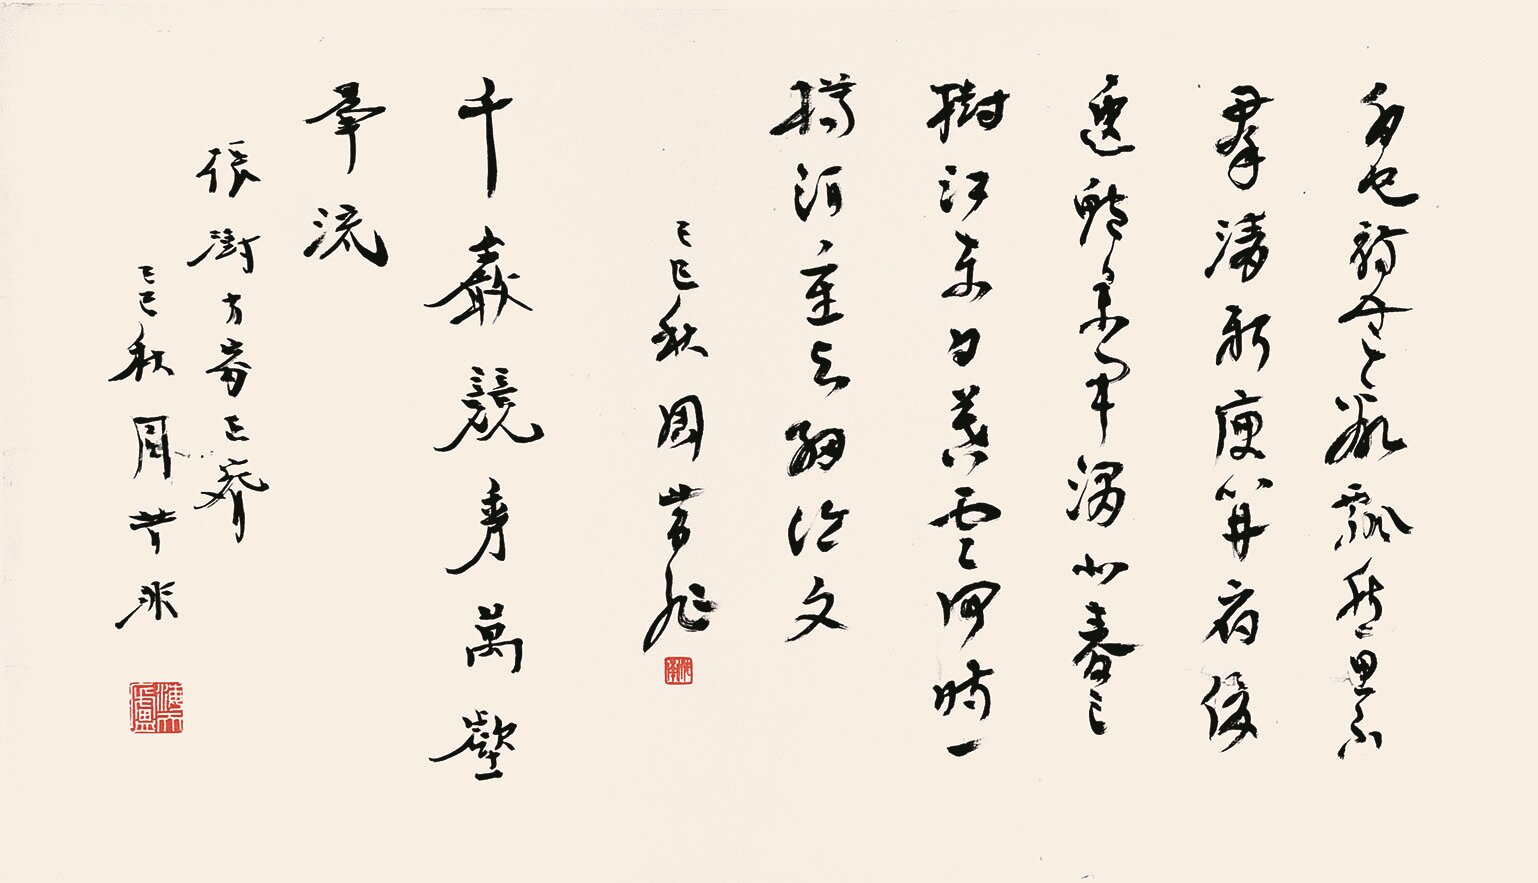 白也詩無敵飄然思不
羣清新庾開府俊
逸鮑參軍渭北春天
樹江東日暮雲何時一
樽酒重與細論文
己巳秋周昔非
千巖競秀萬壑
爭流
張澍方家正
己巳秋周昔非